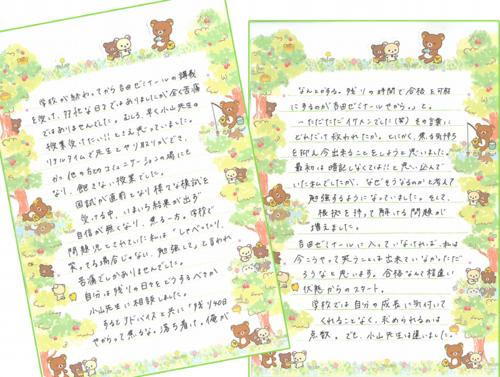 学校が終わってから吉田ゼミナールの講義
を受け、多忙な日々ではありましたが全く苦痛
ではありませんでした。むしろ、早く小山先生の
授業受けたい!!とさえ思っていました。
リアルタイムで先生とやり取りができて、
かつ他の方とのコミュニケーションの場にも
なり、飽きない授業でした。
国試が直前となり様々な模試を
受ける中、いまいち結果が出ず
自信が無くなり、焦る一方。学校で
問題児とされていた私は「しゃべったり、
笑ってる場合じゃない、勉強して。」と言われ
苦痛でしかありませんでした。
自分は残りの日々をどうするべきか
小山先生に相談しました。
するとアドバイスと共に「残り40日
やからって焦るな。落ち着け。俺が
なんとかする。残りの時間で合格を可能
にするのが吉田ゼミナールやから。」と。
ただただイケメンでした(笑)その言葉に
どれだけ救われたか。とにかく、焦る気持ち
を抑え今出来ることをしようと思いました。
最初は暗記しなくては!!と思い込んで
いた私でしたが、なぜそうなるのかと考えて
勉強するようになっていました。そして、
根拠を持って解ける問題が
増えました。
吉田ゼミナールに入っていなければ、私は
今こうやって笑うことは出来ていなかっただ
ろうなと思います。合格なんて程遠い
状態からのスタート。
学校では自分の成長に気付いて
くれることなく、求められるのは
点数。でも、小山先生は違いました。